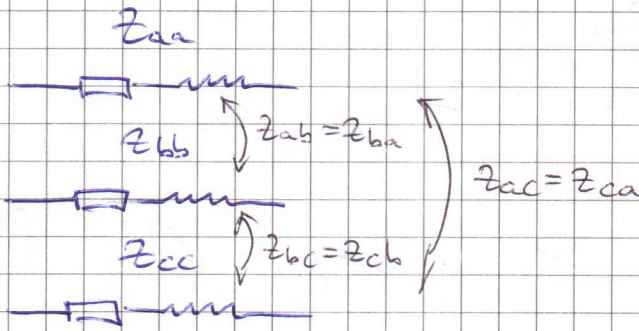 Zaa
Zab = Zba
Zbb
Zac = Zca
Zbc = Zcb
Zcc